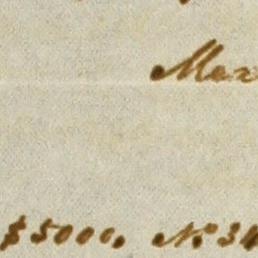 Mex
$5000. No 34